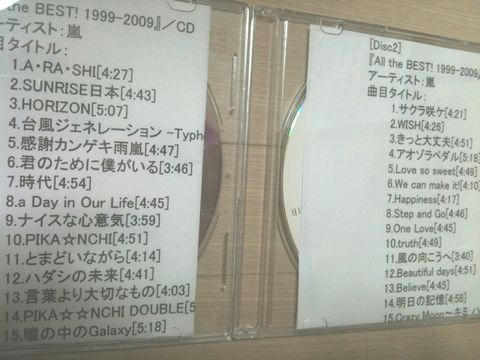 the BEST! 1999-2009』／CD
アーティスト：嵐
曲目タイトル：
1.A・RA・SHI[4:27]
2.SUNRISE日本[4:43]
3.HORIZON[5:07]
4.台風ジェネレーション -Typho
5.感謝カンゲキ雨嵐[4:47]
6.君のために僕がいる[3:46]
7.時代[4:54]
8.a Day in Our Life[4:45]
9.ナイスな心意気[3:59]
10.PIKA☆NCHI[4:51]
11.とまどいながら[4:14]
12.ハダシの未来[4:41]
13.言葉より大切なもの[4:03]
14.PIKA☆NCHI DOUBLE[5
15.瞳の中のGalaxy[5:18]
[Disc2]
『All the BEST! 1999-2009
アーティスト：嵐
曲目タイトル：
1.サクラ咲ケ[4:21]
2.WISH[4:26]
3.きっと大丈夫[4:51]
4.アオゾラペダル[5:18]
5.Love so sweet[4:49]
6.We can make it![4:10]
7.Happiness[4:17]
8.Step and Go[4:46]
9.One Love[4:45]
10.truth[4:49]
11.風の向こうへ[3:40]
12.Beautiful days[4:51]
13.Believe[4:45]
14.明日の記憶[4:58]
15.Crazy Moon～キミ・ハ